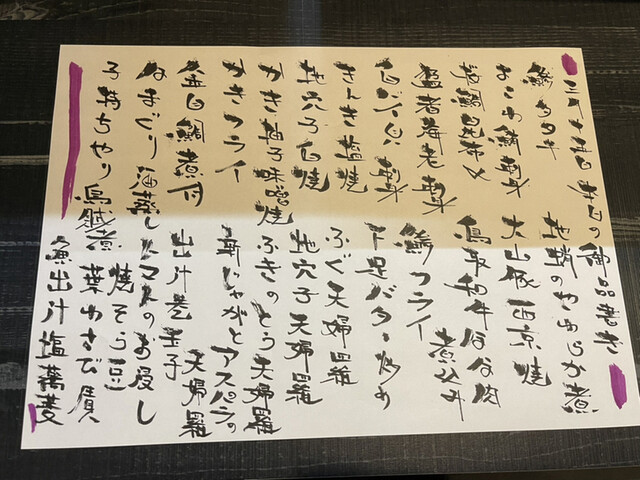 三月十四日 本日の御品書き
鯵タタキ
地蛸のやわらか煮
おこわ鯖刺身
大山豚西京焼
昆布〆
鳥取和牛ほほ肉煮込み
刺身
鯵フライ
白バイ貝刺身
下足バター炒め
きんき塩焼
ふぐ天婦羅
地穴子白焼
地穴子天婦羅
かき柚子味噌焼
ふきのとう天婦羅
かきフライ
新じゃがとアスパラの天婦羅
金目鯛煮付
出汁巻玉子
はまぐり酒蒸し
トマトのお浸し
焼そら豆
子持ちやり烏賊煮
葉わさび漬
魚出汁塩蕎麦